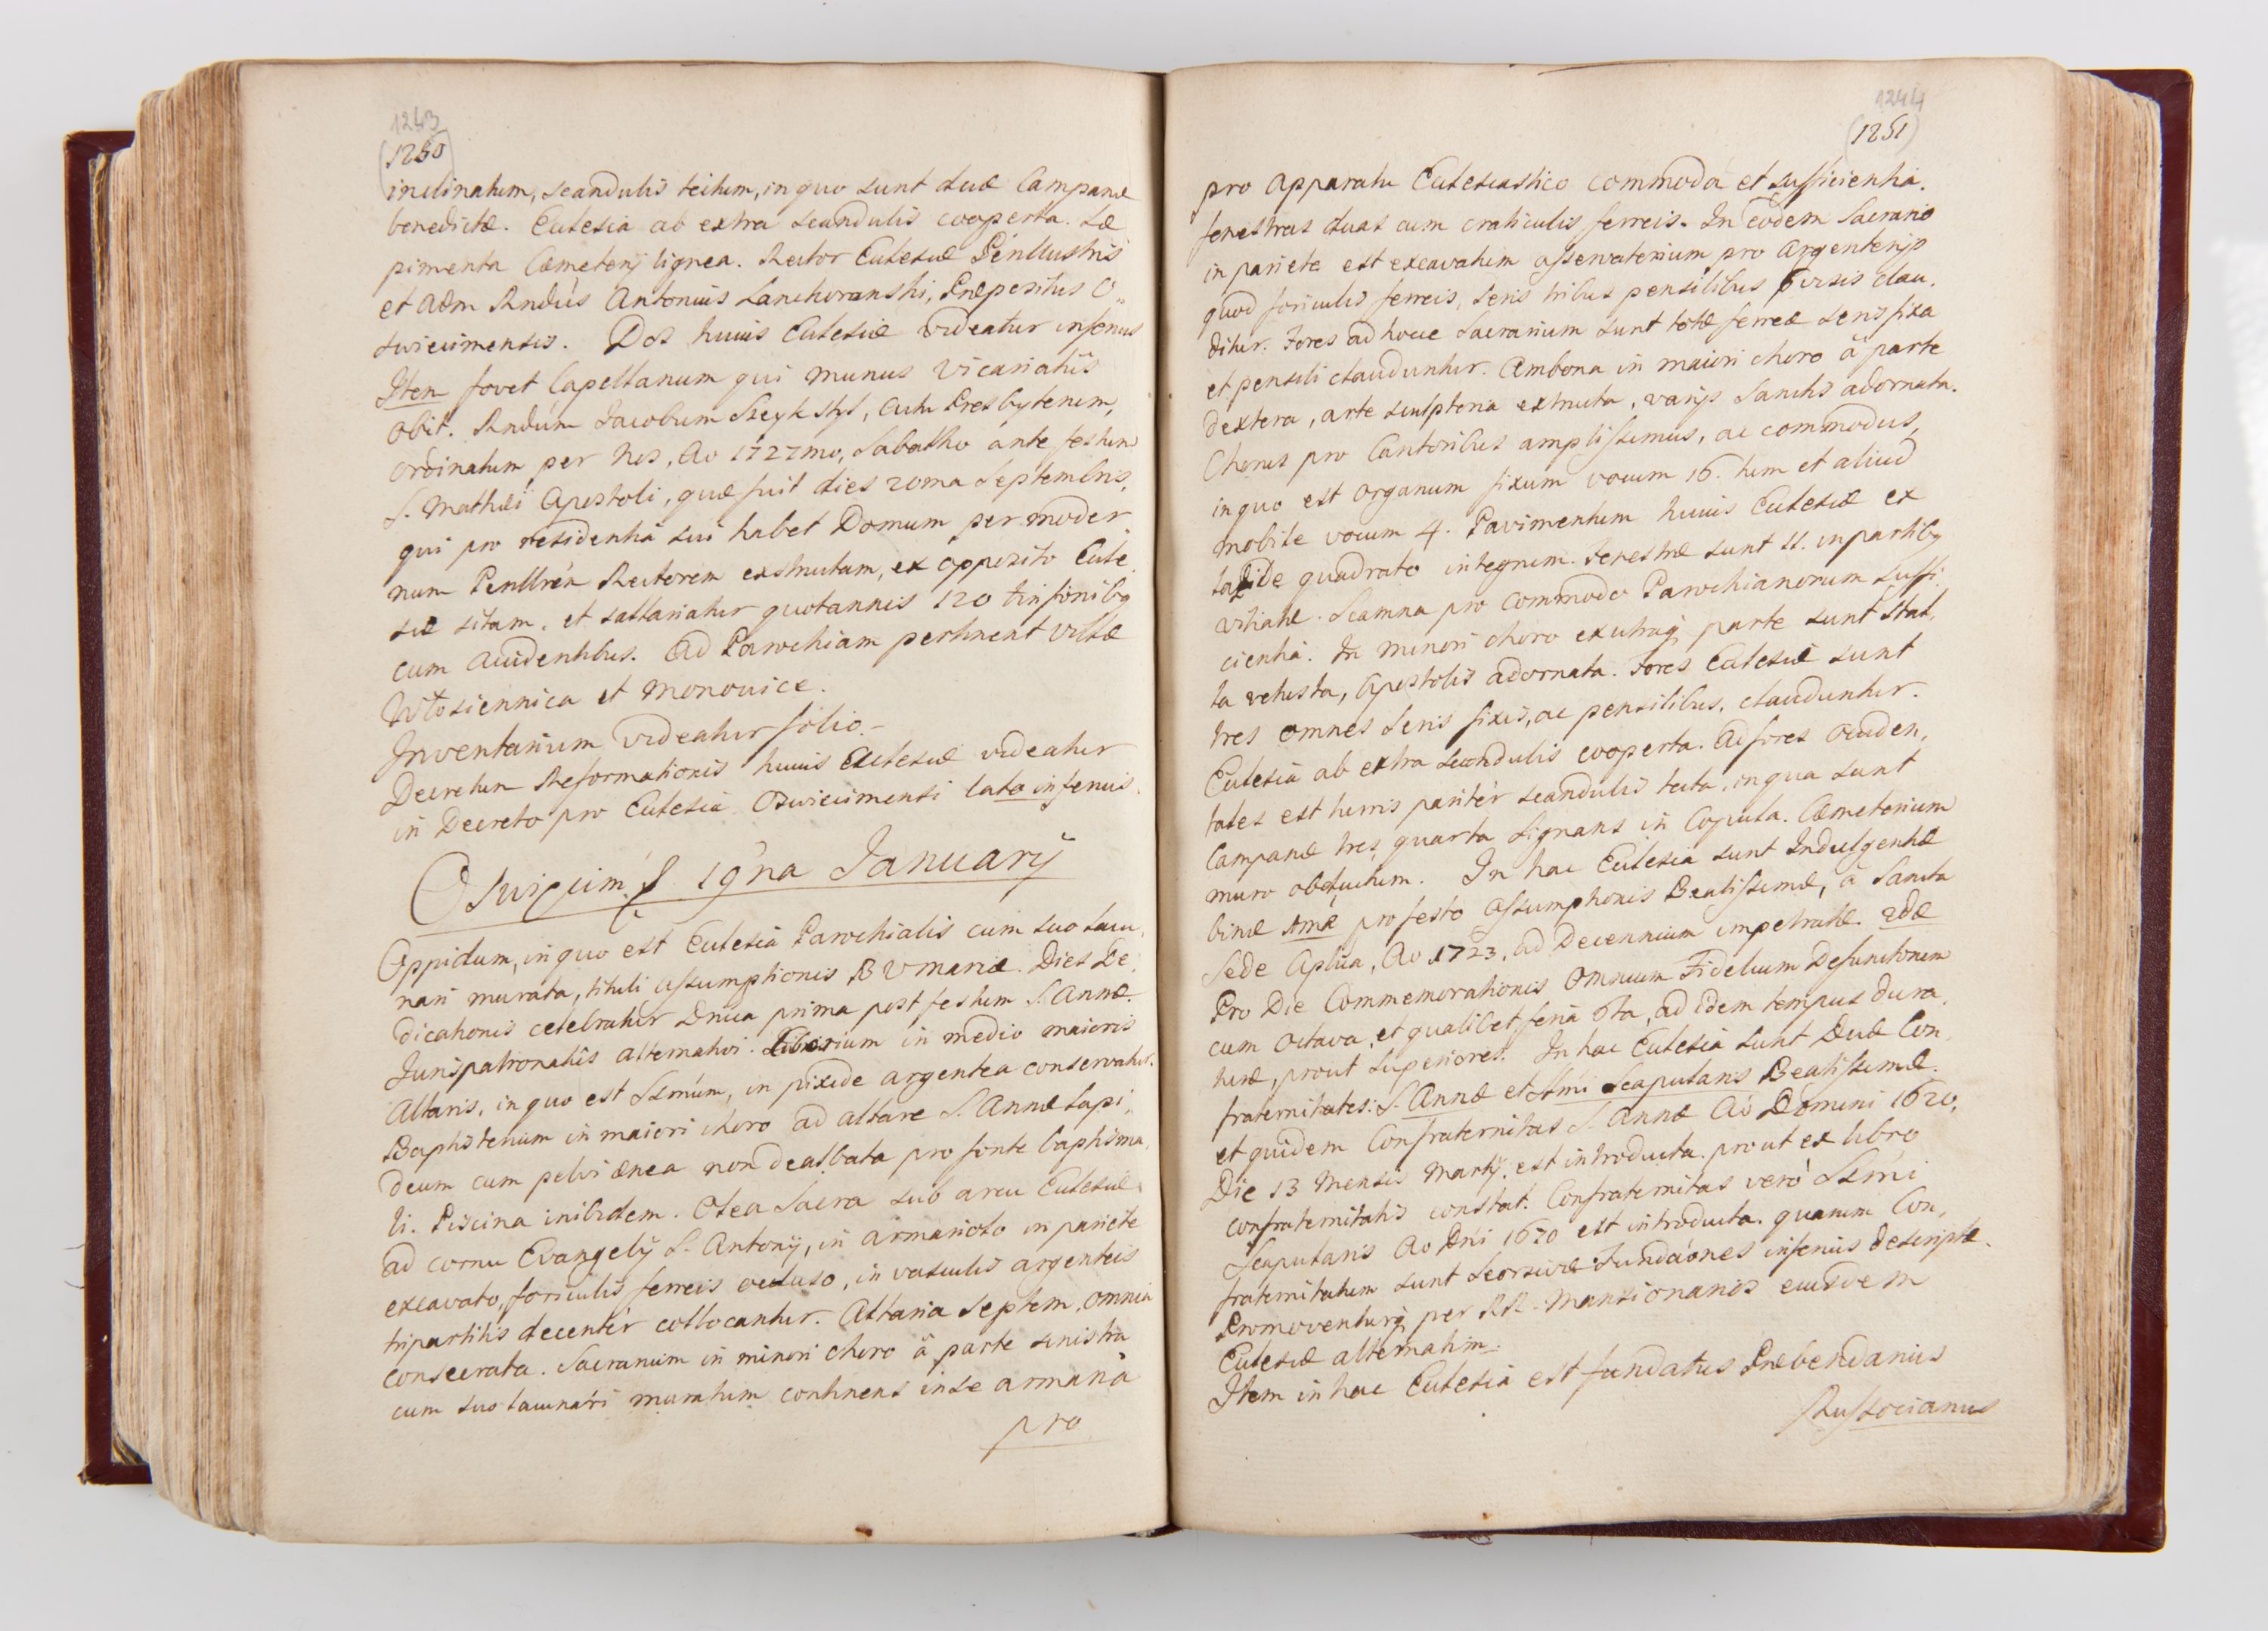 1243
(1250)
inclinatum, scandulis tectum, in quo sunt duæ Campanæ
benedictæ. Ecclesia ab extra scandulis cooperta. Sæ
pimenta Cæmeterij lignea. Rector Ecclesiæ Perillustris
et Adm Rndus Antonius Lanchoranshi, Præpositus O
swiecimensis. Dos huius Ecclesiæ videatur inferius
Item fovet Capellanum qui munus Vicariatus
obit. Rndum Jacobum Szeyk styl, Cura Presbyterum,
ordinatum per Nos, Ao 1727mo, Sabatho ante festum
S. Mathæi Apostoli, quæ fuit dies 20ma Septembris,
qui pro residentia sui habet Domum per moder
num Perillrem Rectorem exstructam, ex opposito Eccle
siæ sitam, et sallariatur quotannis 120 tinfonibq
cum accidentibus. Ad Parochiam pertinent villæ
Włosiennica et Monouice.
Inventarium videatur folio.-
Decretum Reformationis huius Ecclesiæ videatur
in Decreto pro Ecclesia Oswiecimensi lato inferius.
Oswięcim, 19na Ianuarij
Oppidum, in quo est Ecclesia Parochialis cum suo lacu,
nari murata, tituli Assumptionis B V Mariæ. Dies De,
dicationis celebratur Dnica prima post festum S. Annæ.
Jurispatronatûs alternativi. Ciborium in medio maioris
Altaris, in quo est SSmum, in pixide argentea conservatur.
Baptisterium in maiori choro ad altare S. Annæ lapi,
deum cum pelvi ænea non dealbata pro fonte baptisma,
li. Piscina inibidem. Olea Sacra sub arcu Ecclesiæ
ad cornu Evangelij S. Antonij, in armariolo in pariete
excavato, foriculis ferreis occluso, in vasculis argenteis
tripartitis decenter collocantur. Altaria septem, omnia
consecrata. Sacrarium in minori choro à parte sinistra
cum suo lacunari muratum continens in se armaria
pro
1244
(1251)
pro Apparatu Ecclesiastico commoda et sufficientia.
fenestras duas cum craticulis ferreis. In eodem Sacrario
in pariete est excavatum asservatorium pro Argenterijs
quod foriculis ferreis, seris tribus pensilibus clau,
ditur. Fores ad hocce Sacrarium sunt totæ ferreæ sera fixa
et pensili clauduntur. Ambona in maiori choro à parte
dextera, arte sculptoria extructa, varijs Sanctis adornata.
Chorus pro Cantoribus amplissimus, ac commodus,
in quo est organum fixum vocum 16. tum et aliud
mobile vocum 4. Pavimentum huius Ecclesiæ ex
lapide quadrato integrum. Fenestræ sunt 11. in partibq
vitiatæ. Scamna pro commodo Parochianorum suffi
cientia. In minori choro ex utraq; parte sunt Stal,
la vetusta, Apostolis adornata. Fores Ecclesiæ sunt
tres omnes seris fixis, ac pensilibus, clauduntur.
Ecclesia ab extra scandulis cooperta. Ad fores occiden,
tales est turris pariter scandulis tecta, in qua sunt
Campanæ tres, quarta signans in Copula. Cæmeterium
muro obductum. In hac Ecclesia sunt Indulgentiæ
binæ 1mæ pro festo Assumptionis Beatissimæ, à Sancta
Sede Aplica, Ao 1723, ad Decennium impetratæ. 2dæ
Pro Die Commemorationis Omnium Fidelium Defunctorum
cum Octava, et qualibet feria 6ta, ad idem tempus dura,
turæ, prout superiores. In hac Ecclesia sunt Duæ Con,
fraternitates: S. Annæ et SSmi Scapularis Beatissimæ.
et quidem Confraternitas S. Annæ Ao Domini 1620,
Die 13 Mensis Martij, est introducta. prout ex libro
confraternitatis constat. Confraternitas verò SSmi
Scapularis Ao Dni 1670 est introducta. quarum Con,
fraternitatum sunt seorsivæ Fundaones inferius descriptæ.
Promoventurq; per RR. Mansionarios eiusdem
Ecclesiæ alternatim.
Item in hac Ecclesia est fundatus Præbendarius
Russocianus